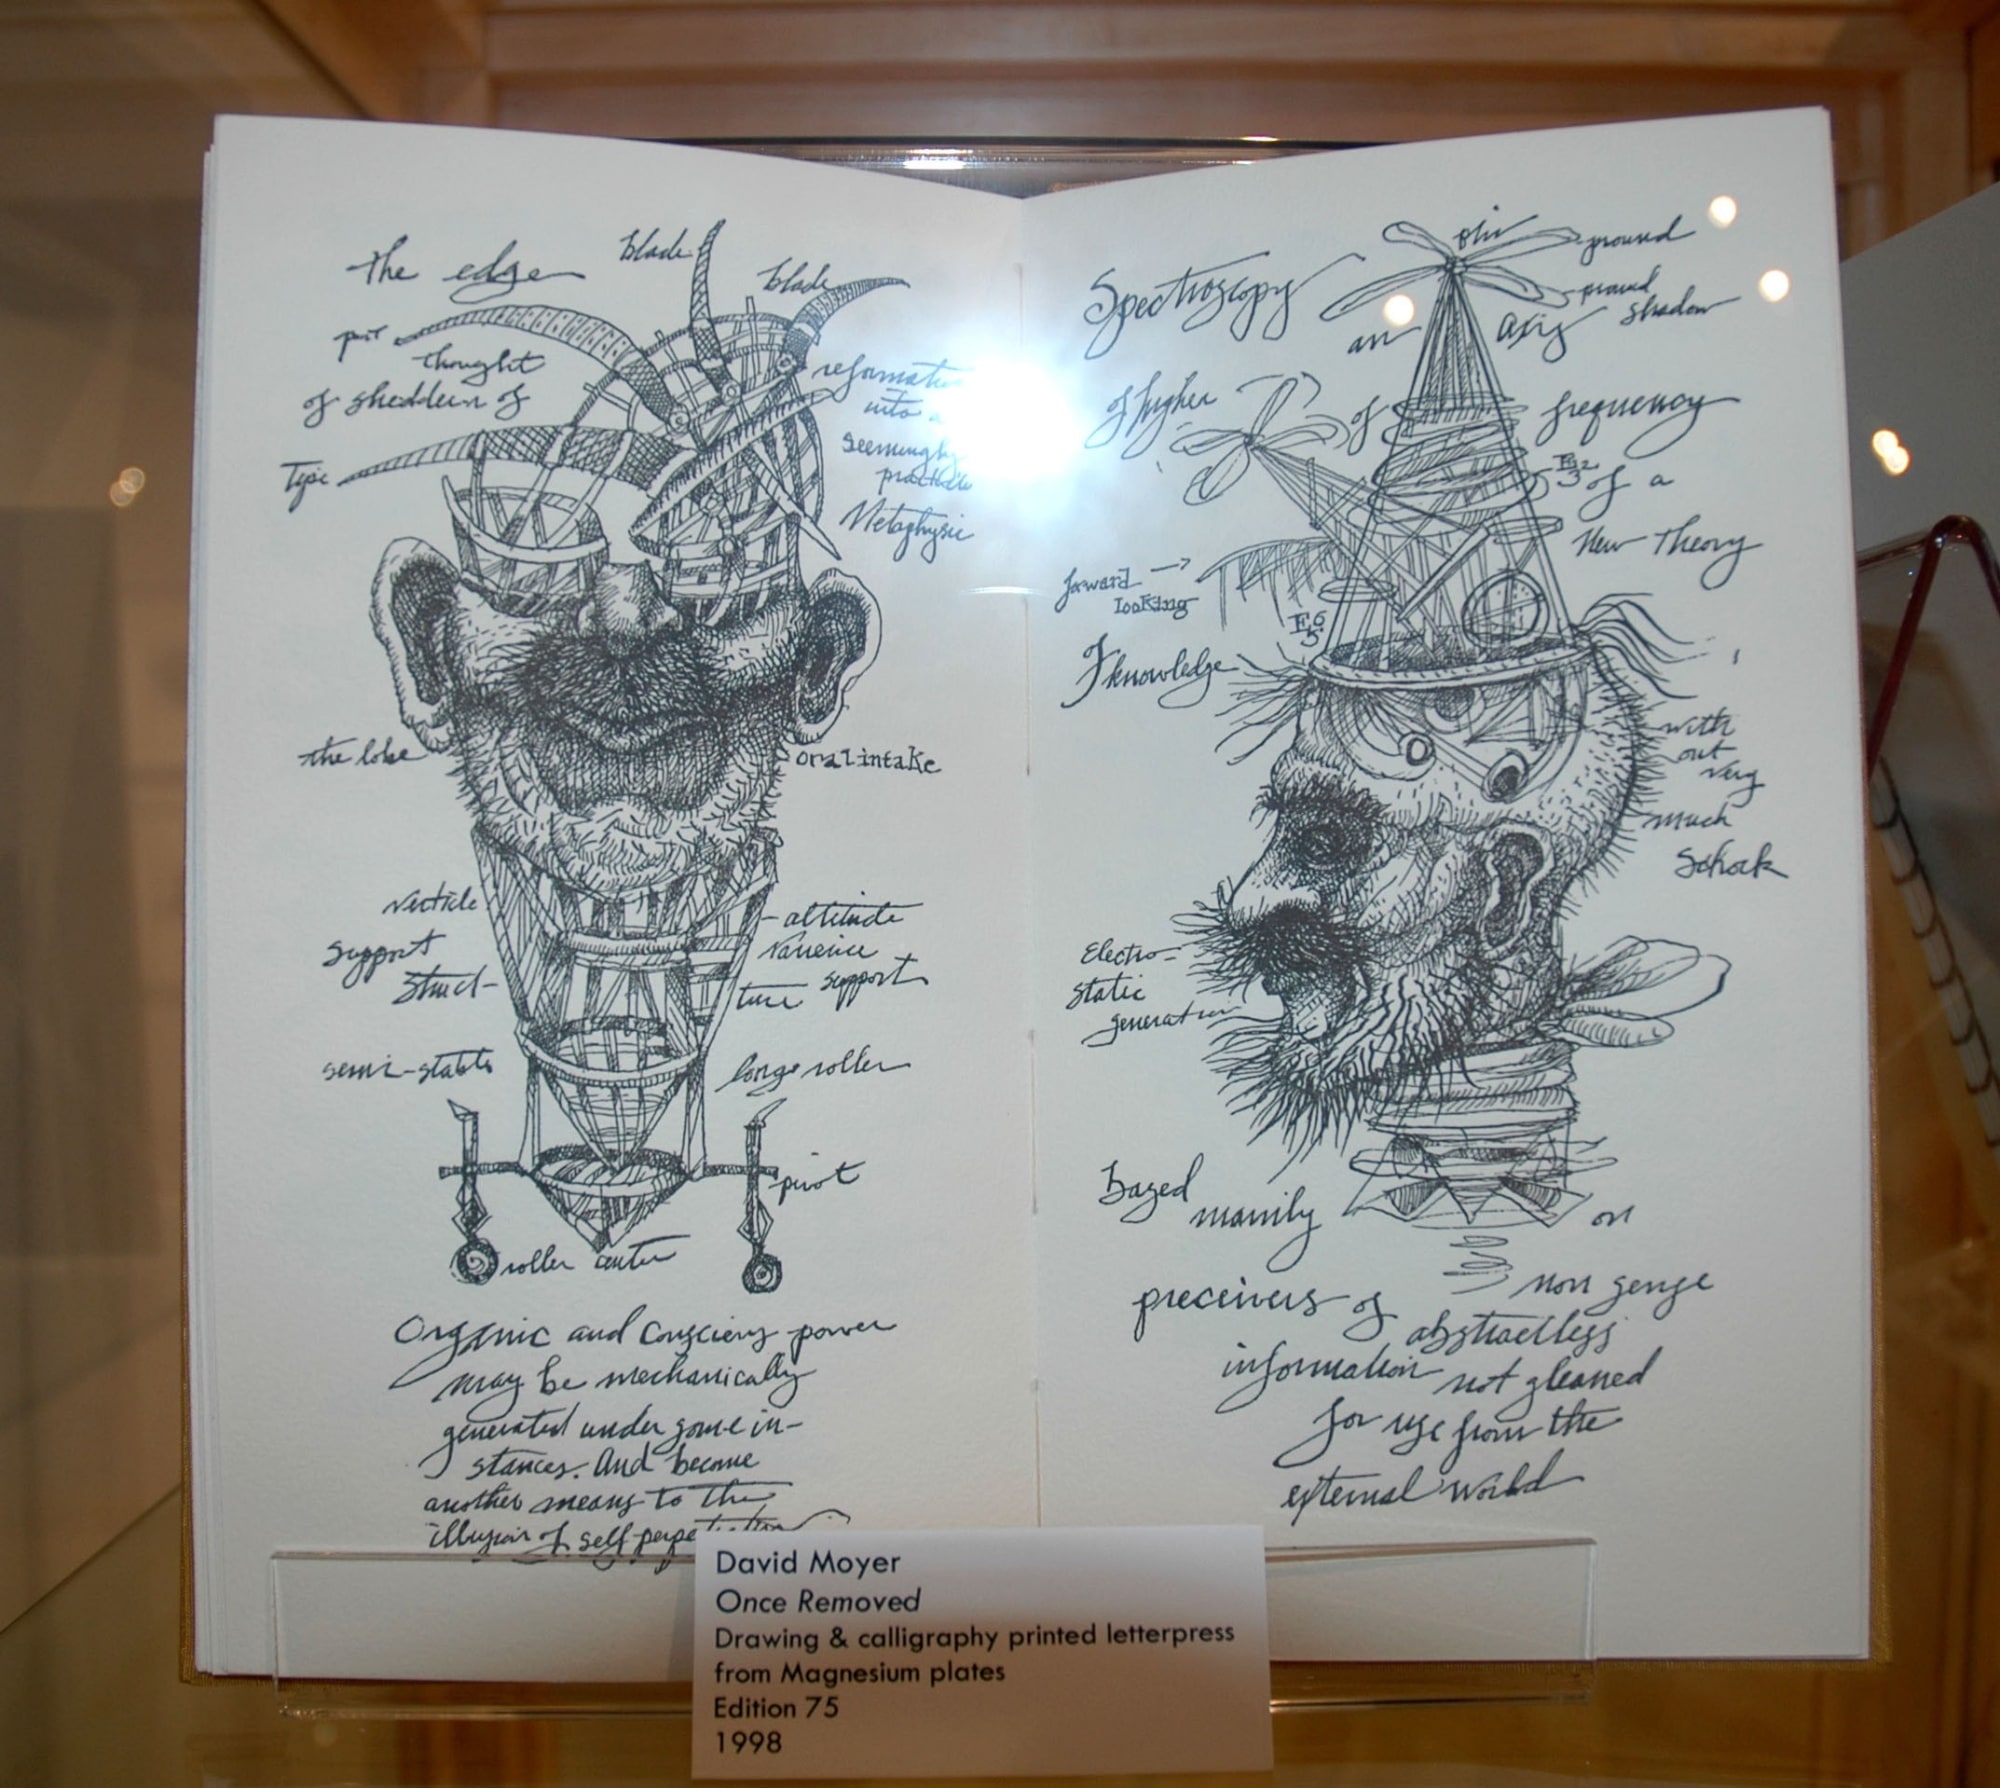 the edge
blade
blade
thought
of sheddern of
Type
reformation
into a
seemingly
practicle
Metaphysic
the lobe
oral intake
verticle
support
Struct-
altitude
varience
ture support
semi-stable
longe roller
pivot
roller center
Organic and conscieng power
may be mechanically
generated under some in-
stances. And become
another means to the
illusion of self perpe
Spectroscopy
an Axis
ground
shadow
of higher
of frequency
of a
New Theory
forward →
looking
of knowledge
with
out
very
much
Schock
Electro-
static
generation
based
mainly
on
preceivers of
non sense
abstractless
information not gleaned
for use from the
external world
David Moyer
Once Removed
Drawing & calligraphy printed letterpress
from Magnesium plates
Edition 75
1998